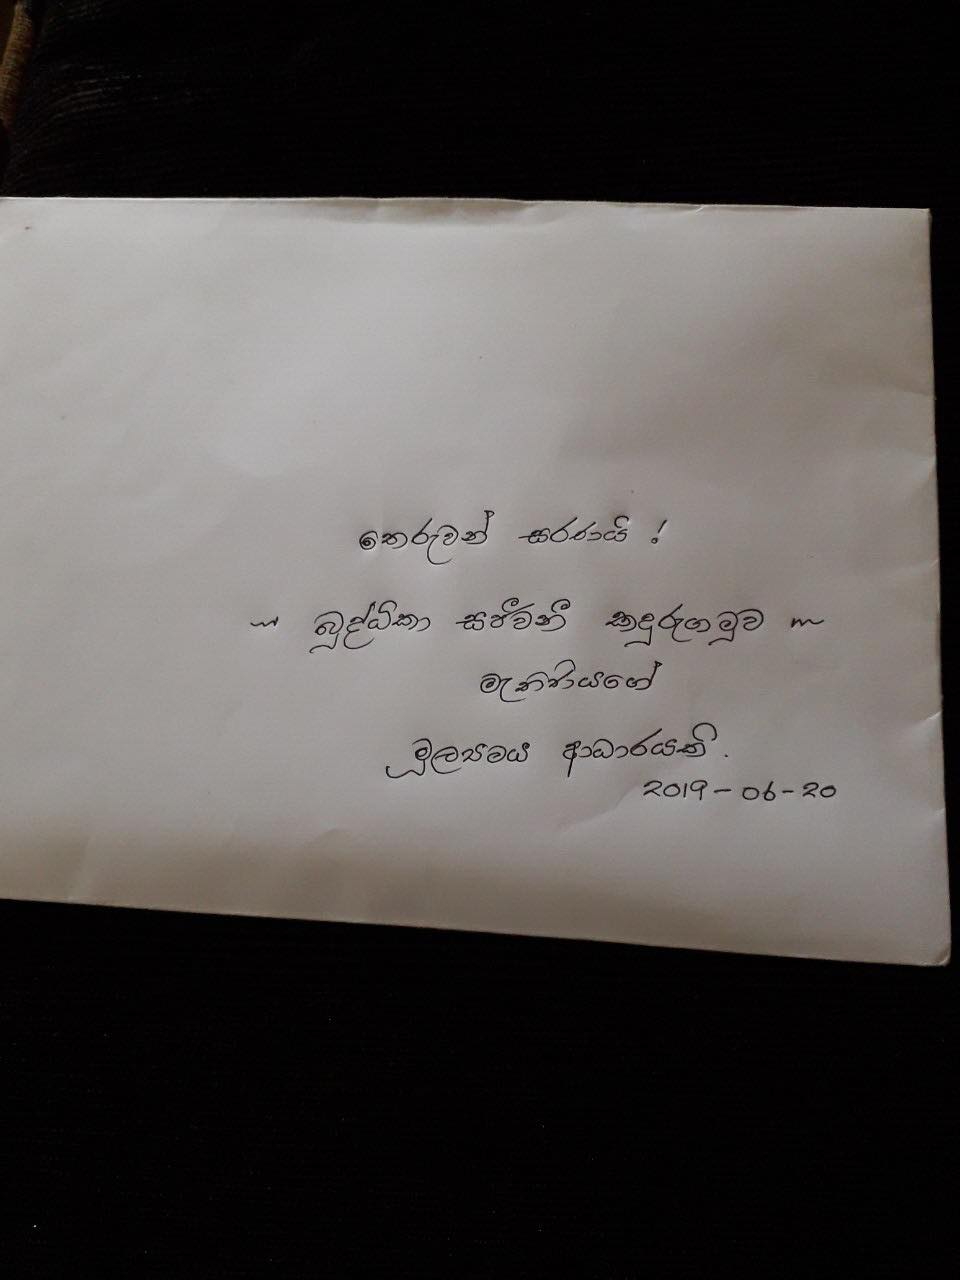 තෙරුවන් සරණයි !
~ බුද්ධිකා සජීවනී කඳුරුගමුව ~
මැතිණියගේ
මූල්‍යමය ආධාරයකි.
2019-06-20